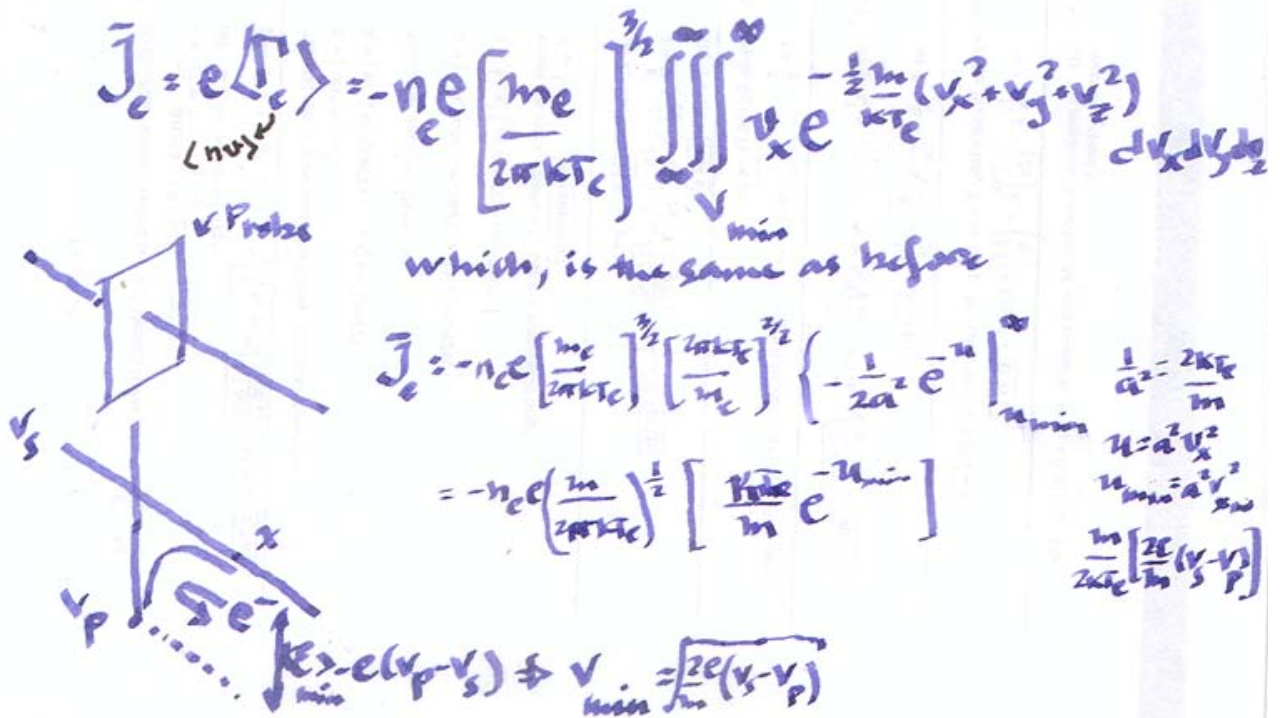 J̄_e = e⟨Γ_e⟩ = -n_e e [m_e / 2πKT_e]^{3/2} ∭_{∞ ∞ V_min}^{∞ ∞} v_x e^{-\frac{1}{2} \frac{m}{KT_e}(v_x^2+v_y^2+v_z^2)} dv_x dv_y dv_z
⟨nv⟩
Probe
which, is the same as before
J̄_e = -n_e e [m_e / 2πKT_e]^{3/2} [2πKT_e / m_e]^{2/2} { -\frac{1}{2a^2} e^{-u} |_{u_min}^{∞}
\frac{1}{a^2} = \frac{2KT_e}{m}
u = a^2 v_x^2
V_s
= -n_e e (m / 2πKT_e)^{1/2} [ \frac{KT_e}{m} e^{-u_min} ]
u_min = a^2 v_{x_min}^2
\frac{m}{2KT_e} [\frac{2e}{m}(V_s-V_p)]
x
V_p
e^-
E_min > -e(V_p-V_s) ⇒ V_min = \sqrt{\frac{2e}{m}(V_s-V_p)}